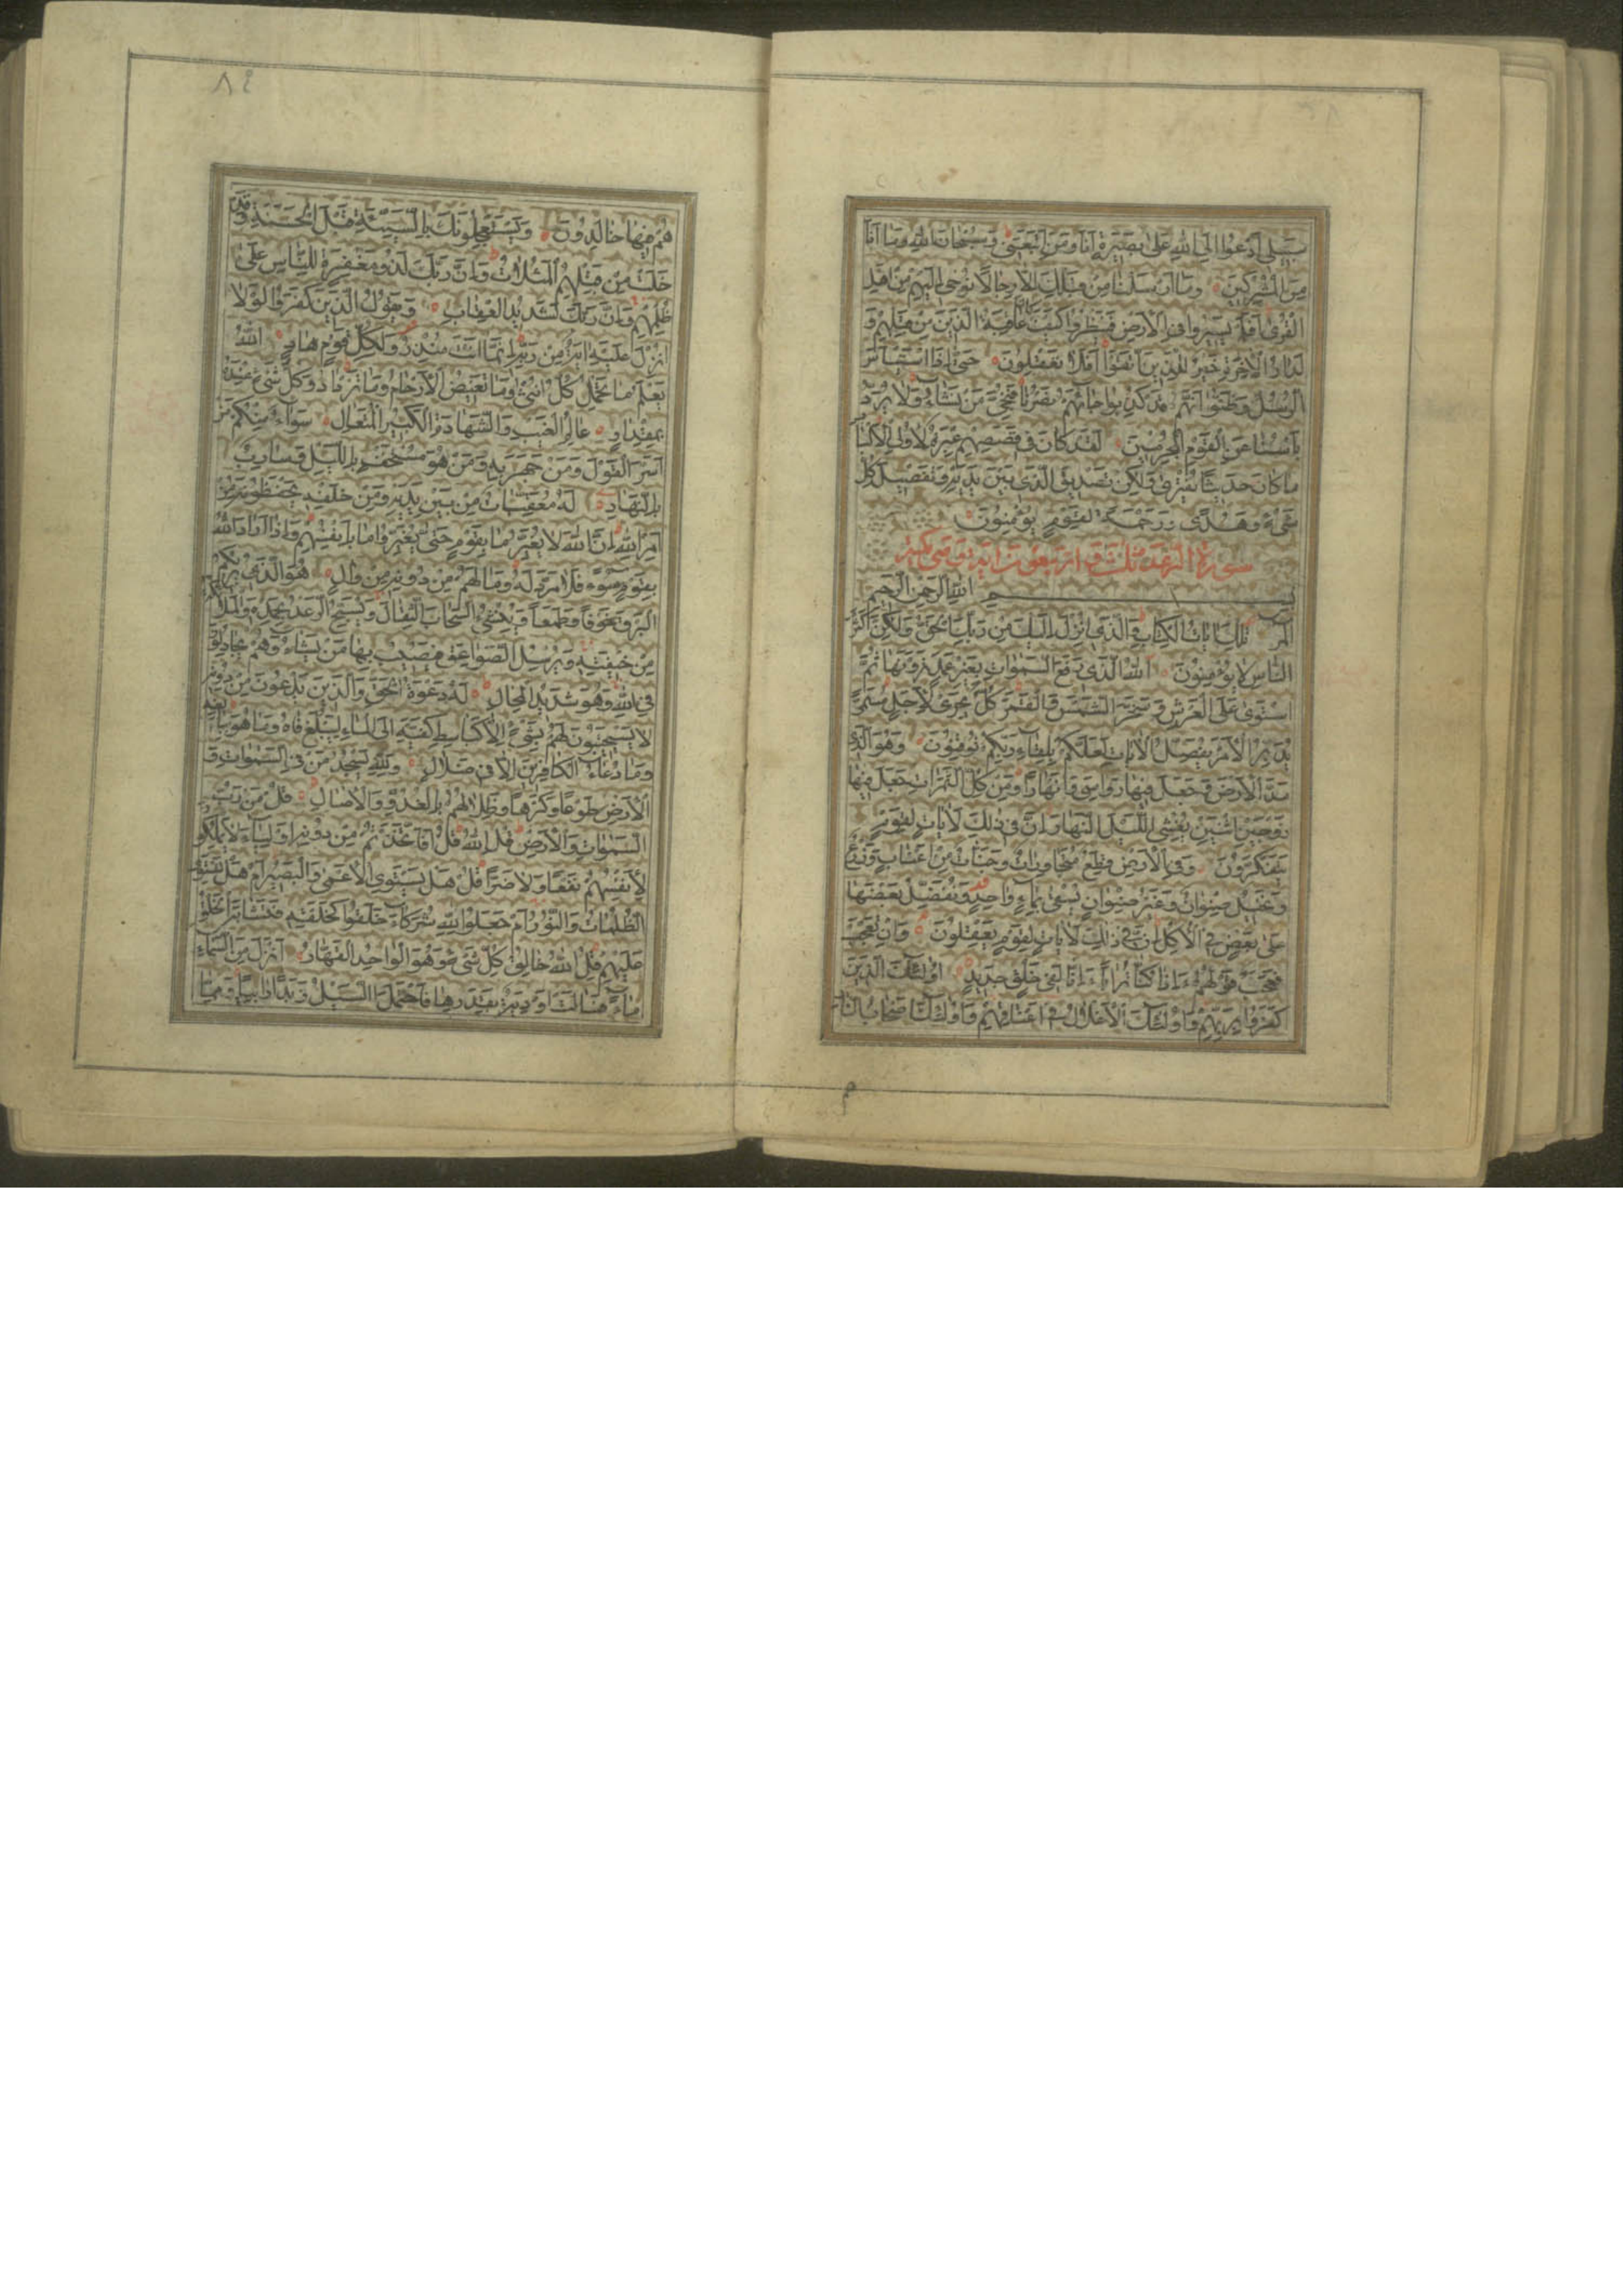 سَبيلي أَدْعُوا إِلَى اللهِ عَلى بَصيرَةٍ أَنَا وَمَنِ اتَّبَعَني وَسُبْحانَ اللهِ وَما أَنَا
مِنَ الْمُشْرِكينَ وَما أَرْسَلْنا مِنْ قَبْلِكَ إِلّا رِجالًا نُوحي إِلَيْهِمْ مِنْ أَهْلِ
الْقُرى أَفَلَمْ يَسيرُوا فِي الْأَرْضِ فَيَنْظُرُوا كَيْفَ كانَ عاقِبَةُ الَّذينَ مِنْ قَبْلِهِمْ وَ
لَدارُ الْآخِرَةِ خَيْرٌ لِلَّذينَ اتَّقَوْا أَفَلا تَعْقِلُونَ حَتّى إِذَا اسْتَيْأَسَ
الرُّسُلُ وَظَنُّوا أَنَّهُمْ قَدْ كُذِبُوا جاءَهُمْ نَصْرُنا فَنُجِّيَ مَنْ نَشاءُ وَلا يُرَدُّ
بَأْسُنا عَنِ الْقَوْمِ الْمُجْرِمينَ لَقَدْ كانَ في قَصَصِهِمْ عِبْرَةٌ لِأُولِي الْأَلْبابِ
ما كانَ حَديثًا يُفْتَرى وَلكِنْ تَصْديقَ الَّذي بَيْنَ يَدَيْهِ وَتَفْصيلَ كُلِّ
شَيْءٍ وَهُدًى وَرَحْمَةً لِقَوْمٍ يُؤْمِنُونَ
سورة الرعد ثلث و اربعون اية و هي مكية
بِسْمِ اللهِ الرَّحْمنِ الرَّحيمِ
المر تِلْكَ اياتُ الْكِتابِ وَالَّذي أُنْزِلَ إِلَيْكَ مِنْ رَبِّكَ الْحَقُّ وَلكِنَّ أَكْثَرَ
النّاسِ لا يُؤْمِنُونَ اللهُ الَّذي رَفَعَ السَّمواتِ بِغَيْرِ عَمَدٍ تَرَوْنَها ثُمَّ
اسْتَوى عَلَى الْعَرْشِ وَسَخَّرَ الشَّمْسَ وَالْقَمَرَ كُلٌّ يَجْري لِأَجَلٍ مُسَمًّى
يُدَبِّرُ الْأَمْرَ يُفَصِّلُ الْآياتِ لَعَلَّكُمْ بِلِقاءِ رَبِّكُمْ تُوقِنُونَ وَهُوَ الَّذي
مَدَّ الْأَرْضَ وَجَعَلَ فيها رَواسِيَ وَأَنْهارًا وَمِنْ كُلِّ الثَّمَراتِ جَعَلَ فيها
زَوْجَيْنِ اثْنَيْنِ يُغْشِي اللَّيْلَ النَّهارَ إِنَّ في ذلِكَ لَآياتٍ لِقَوْمٍ
يَتَفَكَّرُونَ وَفِي الْأَرْضِ قِطَعٌ مُتَجاوِراتٌ وَجَنّاتٌ مِنْ أَعْنابٍ وَزَرْعٌ
وَنَخيلٌ صِنْوانٌ وَغَيْرُ صِنْوانٍ يُسْقى بِماءٍ واحِدٍ وَنُفَضِّلُ بَعْضَها
عَلى بَعْضٍ فِي الْأُكُلِ إِنَّ في ذلِكَ لَآياتٍ لِقَوْمٍ يَعْقِلُونَ وَإِنْ تَعْجَبْ
فَعَجَبٌ قَوْلُهُمْ ءَإِذا كُنّا تُرابًا ءَإِنّا لَفي خَلْقٍ جَديدٍ أُولئِكَ الَّذينَ
كَفَرُوا بِرَبِّهِمْ وَأُولئِكَ الْأَغْلالُ في أَعْناقِهِمْ وَأُولئِكَ أَصْحابُ النّارِ
٨٤
هُمْ فيها خالِدُونَ وَيَسْتَعْجِلُونَكَ بِالسَّيِّئَةِ قَبْلَ الْحَسَنَةِ وَقَدْ
خَلَتْ مِنْ قَبْلِهِمُ الْمَثُلاتُ وَإِنَّ رَبَّكَ لَذُو مَغْفِرَةٍ لِلنّاسِ عَلى
ظُلْمِهِمْ وَإِنَّ رَبَّكَ لَشَديدُ الْعِقابِ وَيَقُولُ الَّذينَ كَفَرُوا لَوْلا
أُنْزِلَ عَلَيْهِ ايَةٌ مِنْ رَبِّهِ إِنَّما أَنْتَ مُنْذِرٌ وَلِكُلِّ قَوْمٍ هادٍ اللهُ
يَعْلَمُ ما تَحْمِلُ كُلُّ أُنْثى وَما تَغيضُ الْأَرْحامُ وَما تَزْدادُ وَكُلُّ شَيْءٍ عِنْدَهُ
بِمِقْدارٍ عالِمُ الْغَيْبِ وَالشَّهادَةِ الْكَبيرُ الْمُتَعالِ سَواءٌ مِنْكُمْ مَنْ
أَسَرَّ الْقَوْلَ وَمَنْ جَهَرَ بِهِ وَمَنْ هُوَ مُسْتَخْفٍ بِاللَّيْلِ وَسارِبٌ
بِالنَّهارِ لَهُ مُعَقِّباتٌ مِنْ بَيْنِ يَدَيْهِ وَمِنْ خَلْفِهِ يَحْفَظُونَهُ مِنْ
أَمْرِ اللهِ إِنَّ اللهَ لا يُغَيِّرُ ما بِقَوْمٍ حَتّى يُغَيِّرُوا ما بِأَنْفُسِهِمْ وَإِذا أَرادَ اللهُ
بِقَوْمٍ سُوءًا فَلا مَرَدَّ لَهُ وَما لَهُمْ مِنْ دُونِهِ مِنْ والٍ هُوَ الَّذي يُريكُمُ
الْبَرْقَ خَوْفًا وَطَمَعًا وَيُنْشِئُ السَّحابَ الثِّقالَ وَيُسَبِّحُ الرَّعْدُ بِحَمْدِهِ وَالْمَلائِكَةُ
مِنْ خيفَتِهِ وَيُرْسِلُ الصَّواعِقَ فَيُصيبُ بِها مَنْ يَشاءُ وَهُمْ يُجادِلُونَ
فِي اللهِ وَهُوَ شَديدُ الْمِحالِ لَهُ دَعْوَةُ الْحَقِّ وَالَّذينَ يَدْعُونَ مِنْ دُونِهِ
لا يَسْتَجيبُونَ لَهُمْ بِشَيْءٍ إِلّا كَباسِطِ كَفَّيْهِ إِلَى الْماءِ لِيَبْلُغَ فاهُ وَما هُوَ بِبالِغِهِ
وَما دُعاءُ الْكافِرينَ إِلّا في ضَلالٍ وَلِلّهِ يَسْجُدُ مَنْ فِي السَّمواتِ وَ
الْأَرْضِ طَوْعًا وَكَرْهًا وَظِلالُهُمْ بِالْغُدُوِّ وَالْآصالِ قُلْ مَنْ رَبُّ
السَّمواتِ وَالْأَرْضِ قُلِ اللهُ قُلْ أَفَاتَّخَذْتُمْ مِنْ دُونِهِ أَوْلِياءَ لا يَمْلِكُونَ
لِأَنْفُسِهِمْ نَفْعًا وَلا ضَرًّا قُلْ هَلْ يَسْتَوِي الْأَعْمى وَالْبَصيرُ أَمْ هَلْ تَسْتَوِي
الظُّلُماتُ وَالنُّورُ أَمْ جَعَلُوا لِلّهِ شُرَكاءَ خَلَقُوا كَخَلْقِهِ فَتَشابَهَ الْخَلْقُ
عَلَيْهِمْ قُلِ اللهُ خالِقُ كُلِّ شَيْءٍ وَهُوَ الْواحِدُ الْقَهّارُ أَنْزَلَ مِنَ السَّماءِ
ماءً فَسالَتْ أَوْدِيَةٌ بِقَدَرِها فَاحْتَمَلَ السَّيْلُ زَبَدًا رابِيًا وَمِمّا